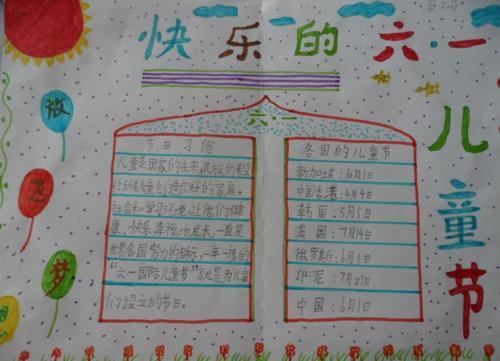 快乐的六·一
儿童节
放飞梦
六·一
节日习俗
儿童是国家的未来,民族的希望
给所有儿童创造良好的家庭、
社会和学习环境,让他们健
康、快乐、幸福地成长,一直是
世界各国努力的目标,一年一度的
“六一国际儿童节”就是为儿童
们设立的节日。
各国的儿童节
新加坡:10月1日
中国香港:4月4日
韩国:5月5日
英国:7月14日
俄罗斯:6月1日
印尼:7月23日
中国:6月1日